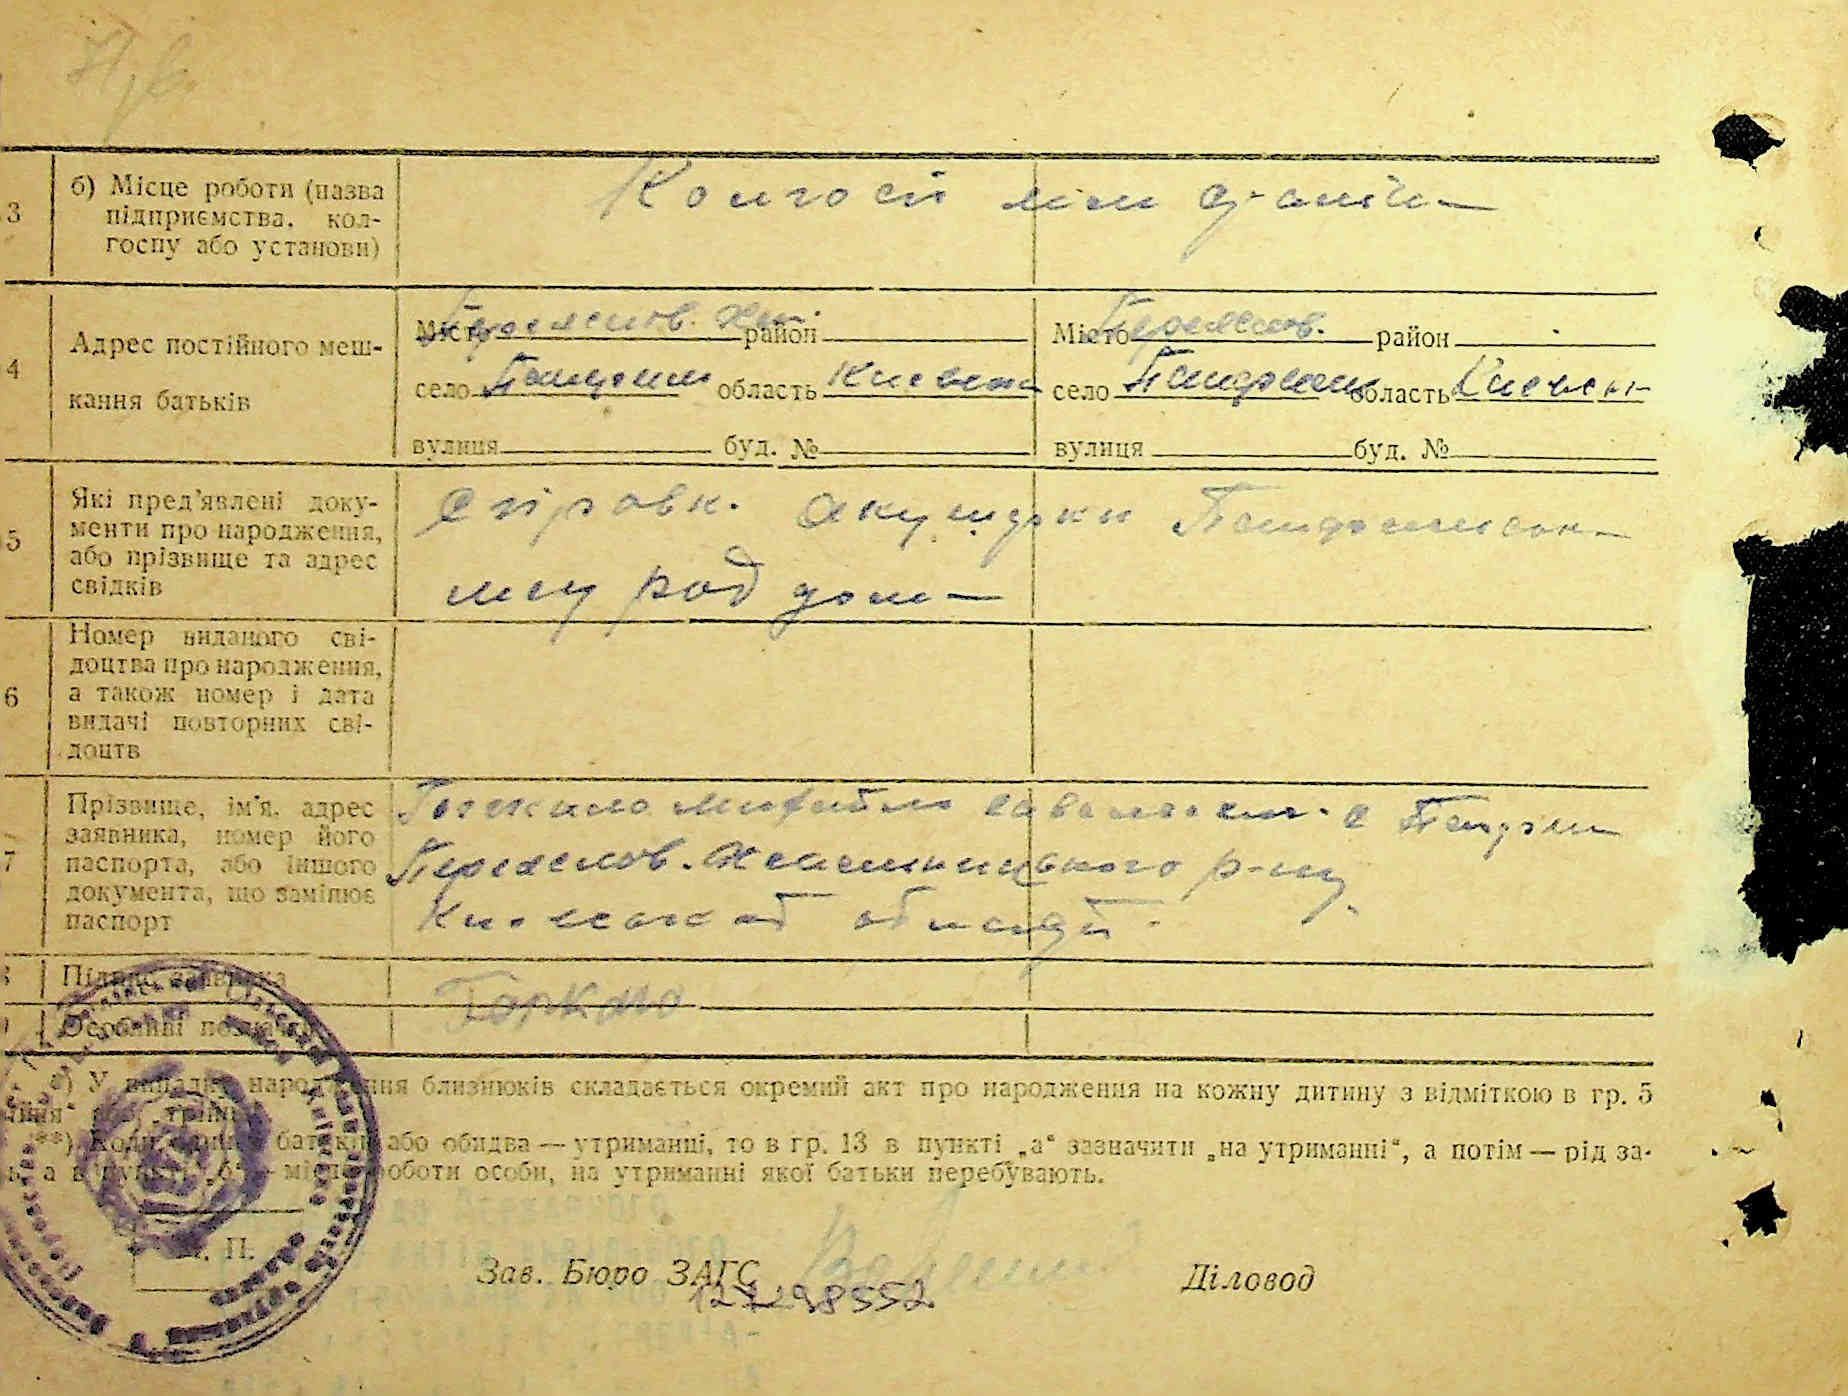 3
б) Місце роботи (назва
підприємства, кол-
госпу або установи)
Колгосп ім Сталін
4
Адрес постійного меш-
кання батьків
Місто Переяслов. Хм. район
село Пандуви область Киевськ
вулиця буд. №
Місто Переяслов. район
село область Киевськ
вулиця буд. №
5
Які пред'явлені доку-
менти про народження,
або прізвище та адрес
свідків
Справк. акушерки
род дом
6
Номер виданого сві-
доцтва про народження,
а також номер і дата
видачі повторних сві-
доцтв
7
Прізвище, ім'я, адрес
заявника, номер його
паспорта, або іншого
документа, що замінює
паспорт
Михайло с
Переяслов. Хмельницького р-ну
Киевской области
Підпис заявника
Горкало
Особливі позначки
*) У випадку народження близнюків складається окремий акт про народження на кожну дитину з відміткою в гр. 5
**) Коли один з батьків або обидва — утриманці, то в гр. 13 в пункті „а" зазначити „на утриманні", а потім — рід за-
а в пункті „б" — місце роботи особи, на утриманні якої батьки перебувають.
М. П.
Зав. Бюро ЗАГС
Діловод
127298552